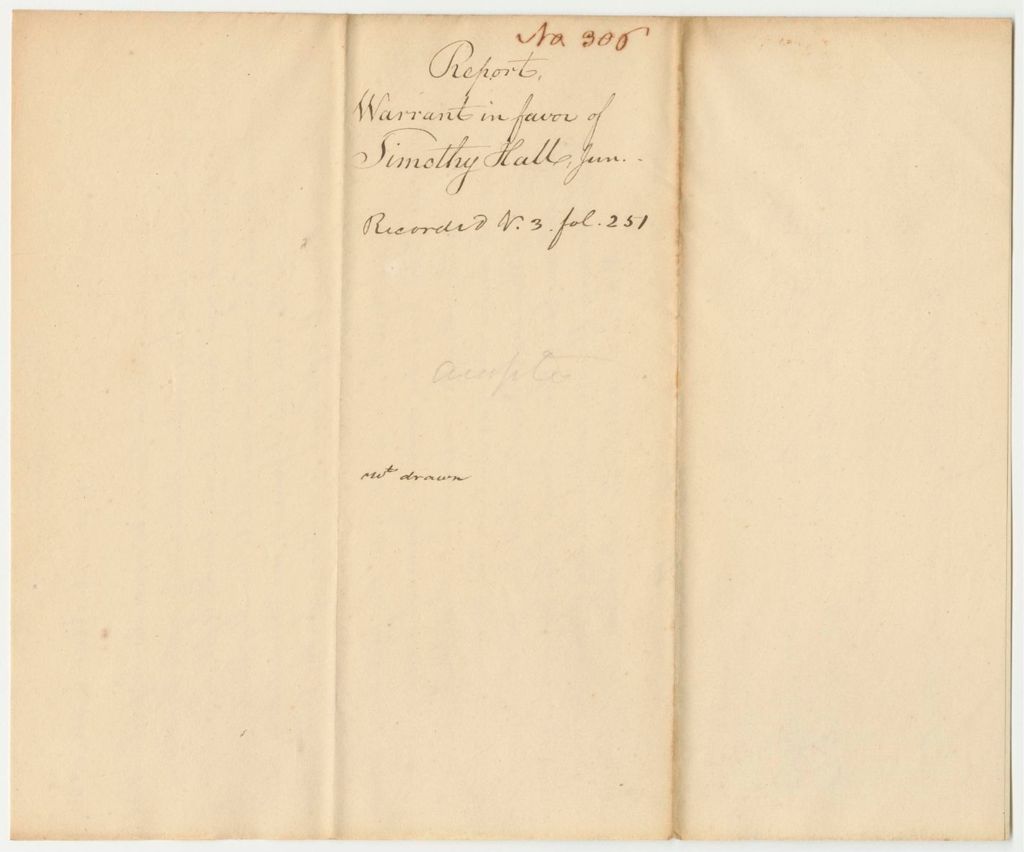 No 306
Report,
Warrant in favor of
Timothy Hall, Jun.
Recorded V. 3. fol. 251
wt drawn